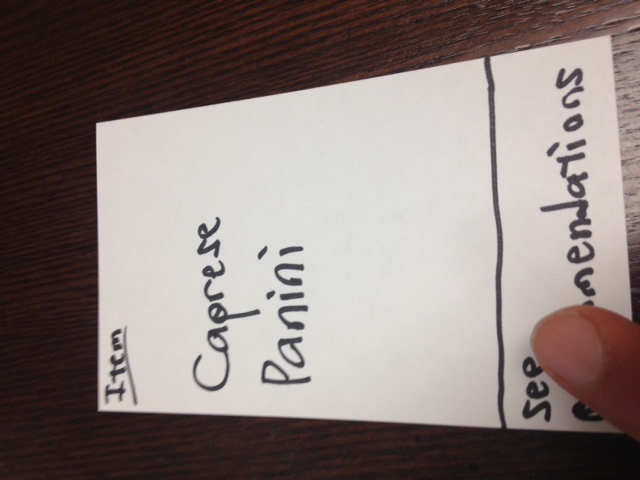 Item
Caprese
Panini
see
mendations